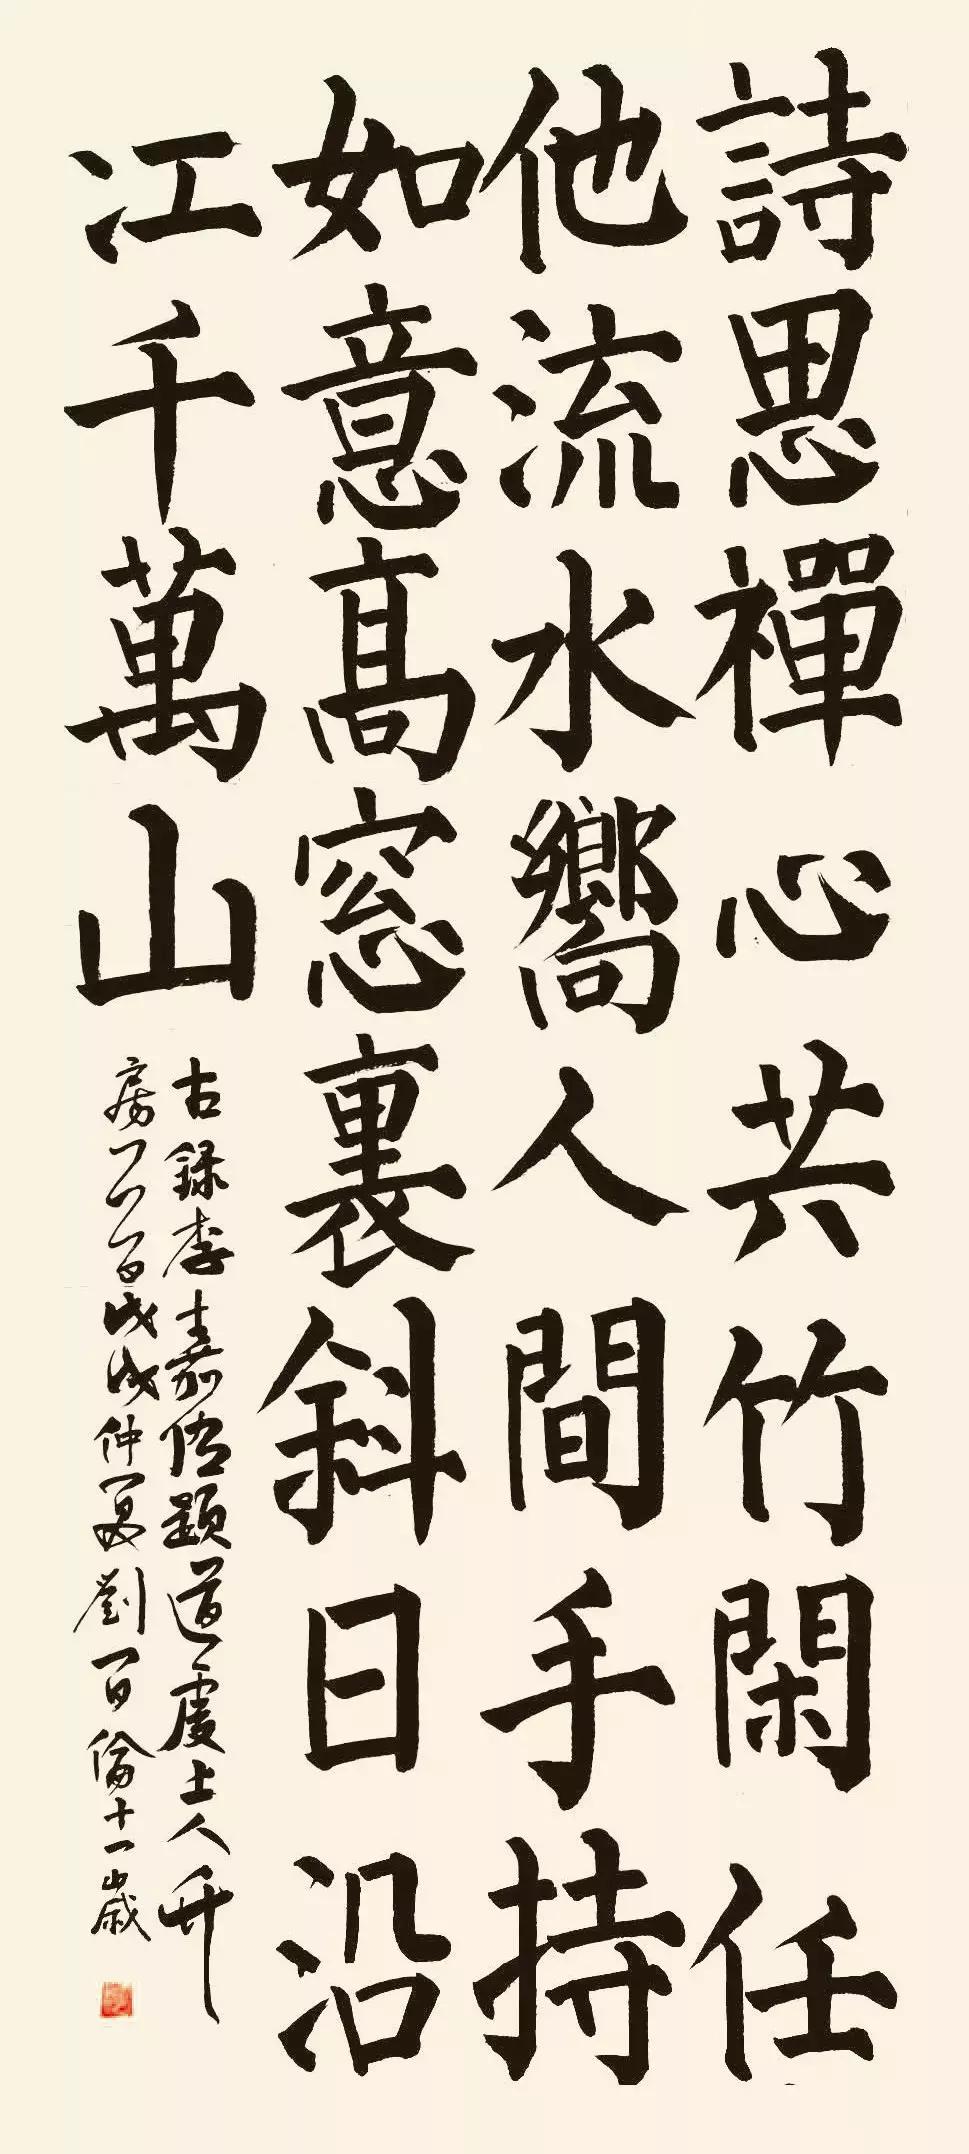 詩思禪心共竹閑任
他流水嚮人間手持
如意高窓裏斜日沿
江千萬山
古錄李嘉佑題道虔上人竹
房一首戊戌仲夏劉百倫十一歲